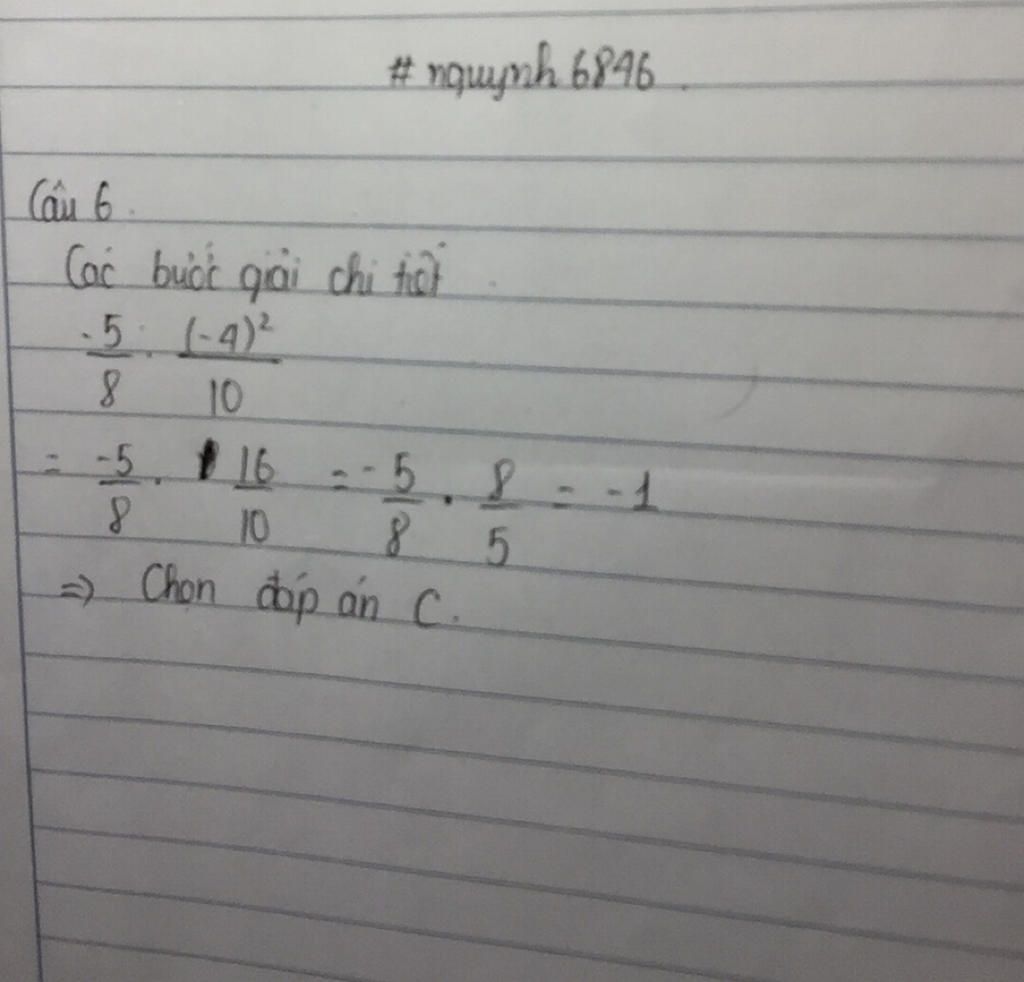 # nquynh 6846.
Câu 6.
Các bước giải chi tiết
-5/8 . (-4)²/10
= -5/8 . 16/10 = -5/8 . 8/5 = -1
=> Chọn đáp án C.